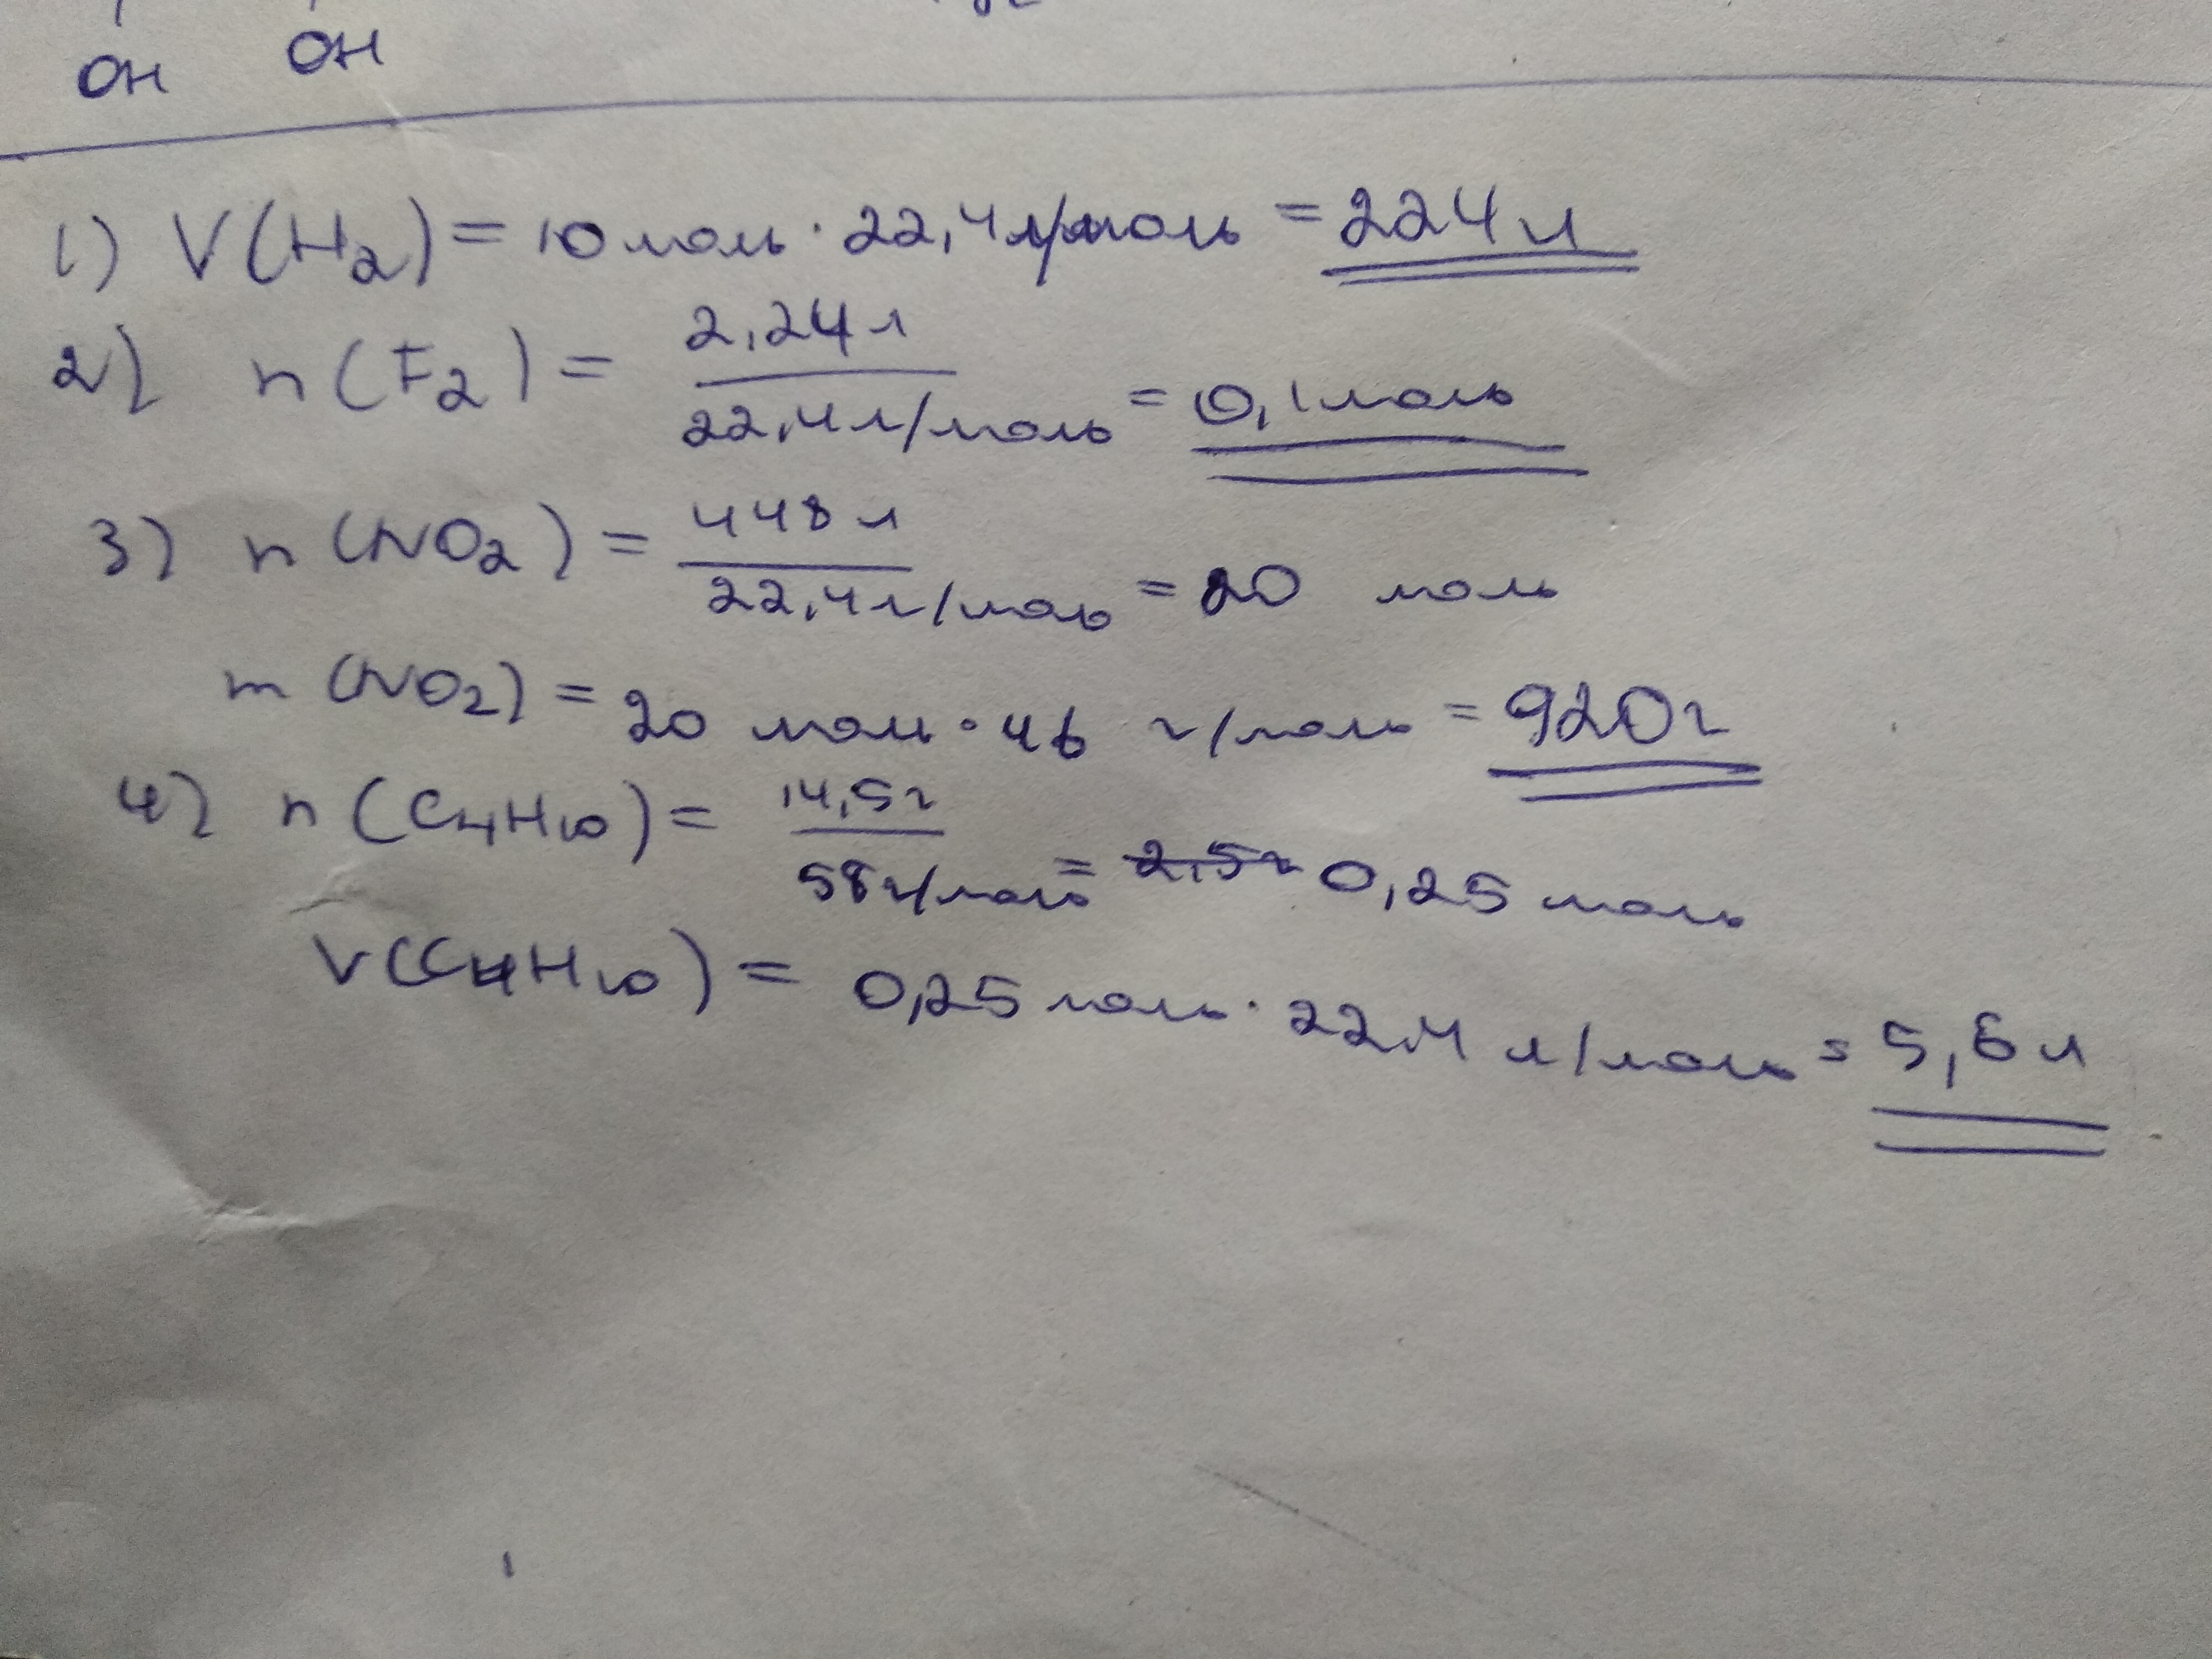 OH OH
1) V(H2) = 10 моль · 22,4 л/моль = 224 л
2) n(F2) = 2,24 л / 22,4 л/моль = 0,1 моль
3) n(NO2) = 448 л / 22,4 л/моль = 20 моль
m(NO2) = 20 моль · 46 г/моль = 920 г
4) n(C4H10) = 14,5 г / 58 г/моль = 2,5 г 0,25 моль
V(C4H10) = 0,25 моль · 22,4 л/моль = 5,6 л